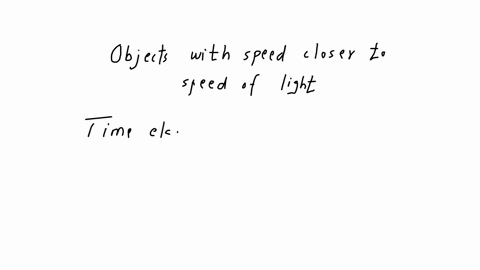 Objects with speed closer to
speed of light
Time ela.